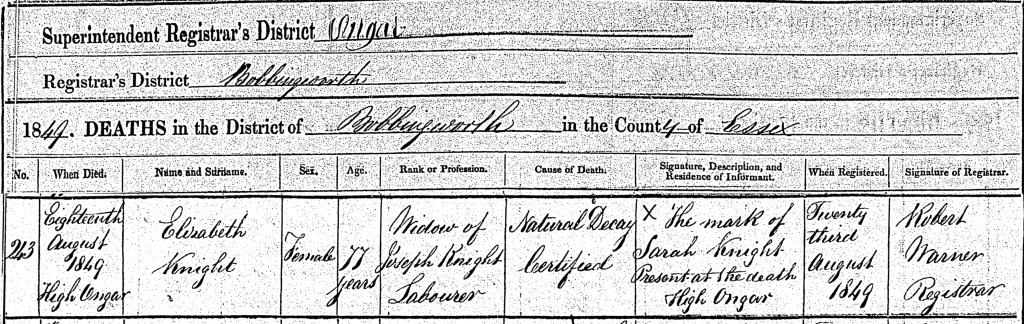 Superintendent Registrar's District Ongar
Registrar's District Bobbingworth
1849. DEATHS in the District of Bobbingworth in the County of Essex
No. When Died. Name and Surname. Sex. Age. Rank or Profession. Cause of Death. Signature, Description, and Residence of Informant. When Registered. Signature of Registrar.
243
Eighteenth
August
1849
High Ongar
Elizabeth
Knight
Female
77
years
Widow of
Joseph Knight
Labourer
Natural Decay
Certified
X The mark of
Sarah Knight
Present at the death
High Ongar
Twenty
third
August
1849
Robert
Warner
Registrar